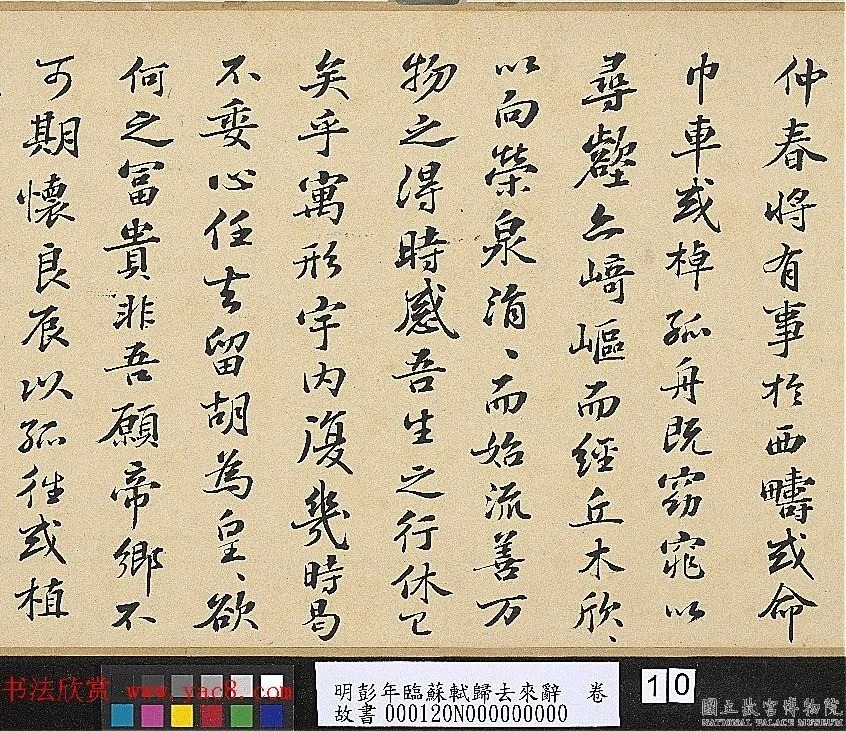 仲春將有事於西疇或命
巾車或棹孤舟既窈窕以
尋壑亦崎嶇而經丘木欣、
以向榮泉涓、而始流善万
物之得時感吾生之行休已
矣乎寓形宇內復幾時曷
不委心任去留胡為皇、欲
何之富貴非吾願帝鄉不
可期懷良辰以孤往或植
书法欣赏 www.yac8.com
明彭年臨蘇軾歸去來辭 卷
故書 000120N000000000
10
國立故宮博物院
NATIONAL PALACE MUSEUM